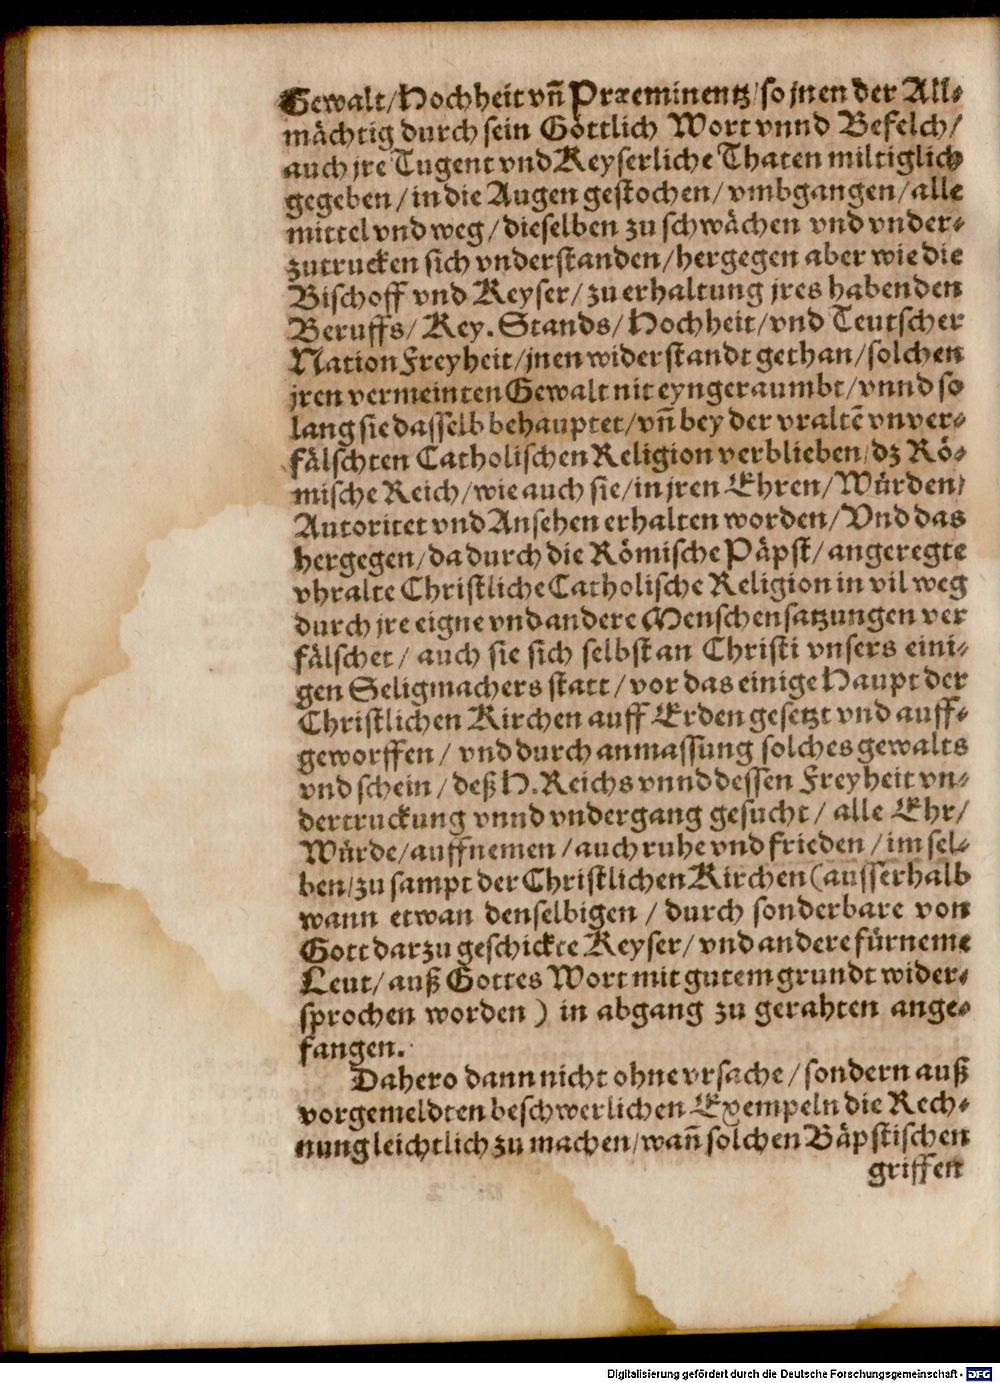 Gewalt/Hochheit vñ Præeminentz/so jnen der All-
mächtig durch sein Göttlich Wort vnnd Befelch/
auch jre Tugent vnd Keyserliche Thaten miltiglich
gegeben/in die Augen gestochen/vmbgangen/alle
mittel vnd weg/dieselben zu schwächen vnd vnder-
zutrucken sich vnderstanden/hergegen aber wie die
Bischoff vnd Keyser/zu erhaltung jres habenden
Beruffs/Key. Stands/Hochheit/vnd Teutscher
Nation Freyheit/jnen widerstandt gethan/solchen
jren vermeinten Gewalt nit eyngeraumbt/vnnd so
lang sie dasselb behauptet/vñ bey der vraltē vnver-
fälschten Catholischen Religion verblieben/dz Rö-
mische Reich/wie auch sie/in jren Ehren/Würden/
Autoritet vnd Ansehen erhalten worden/Vnd das
hergegen/da durch die Römische Päpst/angeregte
vhralte Christliche Catholische Religion in vil weg
durch jre eigne vnd andere Menschensatzungen ver
fälschet/auch sie sich selbst an Christi vnsers eini-
gen Seligmachers statt/vor das einige Haupt der
Christlichen Kirchen auff Erden gesetzt vnd auff-
geworffen/vnd durch anmassung solches gewalts
vnd schein/deß H. Reichs vnnd dessen Freyheit vn-
dertruckung vnnd vndergang gesucht/alle Ehr/
Würde/auffnemen/auch ruhe vnd frieden/im sel-
ben/zu sampt der Christlichen Kirchen (ausserhalb
wann etwan denselbigen/durch sonderbare von
Gott darzu geschickte Keyser/vnd andere fürneme
Leut/auß Gottes Wort mit gutem grundt wider-
sprochen worden) in abgang zu gerahten ange-
fangen.
Dahero dann nicht ohne vrsache/sondern auß
vorgemeldten beschwerlichen Exempeln die Rech-
nung leichtlich zu machen/wañ solchen Bäpstischen
griffen
Digitalisierung gefördert durch die Deutsche Forschungsgemeinschaft - DFG